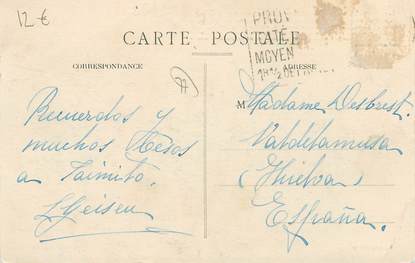 12 €
CARTE POSTALE
CORRESPONDANCE
ADRESSE
MOYEN
Recuerdos y
muchos Besos
a Jaimito.
M
Madame Desbrest.
Valdelamusa
(Huelva)
España.